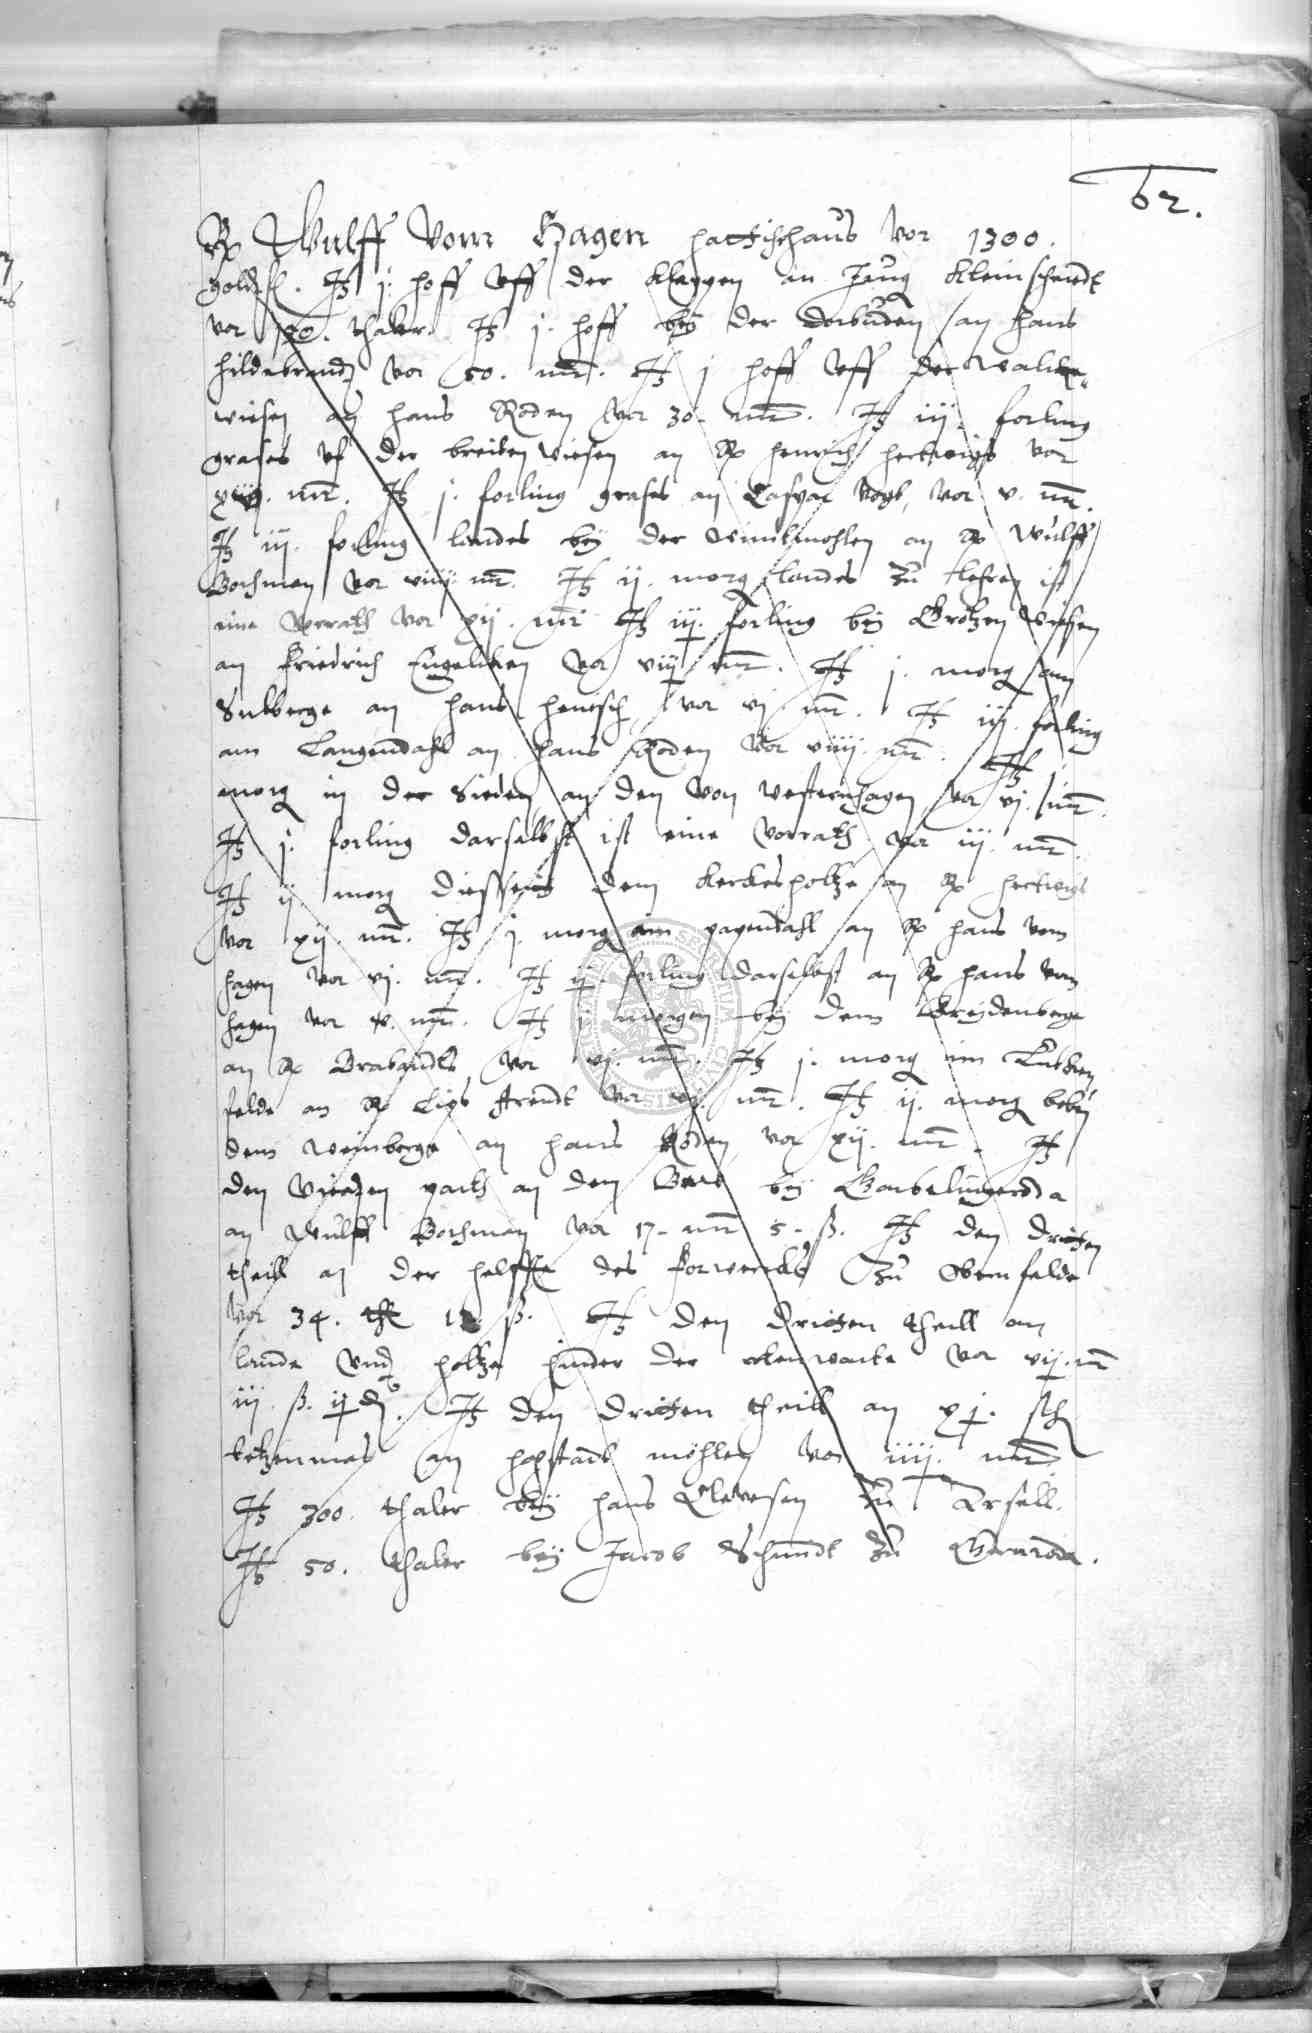 62.
R Wulff Vom Hagen hatt sein haus vor 1300.
goldfl. It j. hoff vff der Klappen an Jung Kleinschmidt
vor 120. thaler. It j. hoff bey der an hans
hildebrand vor 50. mr. It j hoff vff der walcke
wiesen an hans Roden vor 30. mr. It iij. forling
grases vf der breiten wiesen an R henrich hertwigs vor
mr. It j. forling grases an Caspar Vogt, vor v. mr.
It iij. forling landes bey der windtmohlen an R Wulff
Bochman vor viiij. mr. It ij. morg landes zu ist
eine Vorrath vor xij. mr It iij. forling bey Grotzen wiesen
an Friedrich Engelcken vor viij mr. It j. morg am
Sulberge an hans hentsch, vor vj mr. It iij. forling
am Langendahl an hans Roden vor viiij. mr. It j.
morg in der Sieden an den von westernhagen vor vj. mr.
It j. forling darselbst ist eine vorrath vor iij. mr.
It ij morg diesseit dem kerckesholtze an R hertwigs
vor xij mr. It j. morg im pagendahl an R hans vom
hagen vor vj. mr. It ij. forling darselbst an R hans vom
hagen vor v. mr. It j morgen bey dem Breydenberge
an R Brabandts vor vj. mr. It j. morg im Lutken
felde an R Lips Arendt vor vj. mr. It ij. morg boben
dem weinberge an hans Roden, vor xij. mr. It
den vierden parth an dem bey
an Wulff Bochman vor 17. mr 5. ß. It den dritten
theill an der helffte des Forwercks zu Obernfelde
vor 34. ß. It den dritten theill am
lande vnd holtze hinder der warte vor vij. mr
iij. ß. ij d. It den dritten theill an
an mohlen vor iiij. mr
It 300. thaler bey hans Clawesen zu
It 50. thaler bey Jacob Schmidt zu